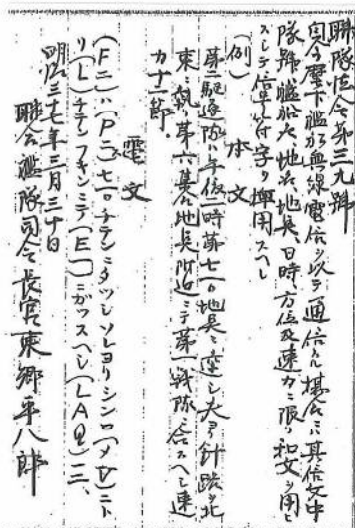 聯隊法令第三九號
麾下艦船無線電信ヲ以テ通信スル場合ニハ其信文中
隊號、艦船名、地名、地点、日時、方位及速力ニ限リ和文ヲ用ヒ
スシテ信号符字ヲ使用スヘシ
(例) 本文
第二駆逐隊ハ午後一時第七一〇地点ニ達シ夫ヨリ針路ヲ北
東ニ執リ第六集合地点附近ニテ第一戦隊ニ合スヘシ速
力十一節
電文
(Fニ)ハ(Pニ)七一〇チテンニタッシソレヨリシンロ(メセ)ニト
リ(L)チテンフキンニテ(E一)ニガッスヘシ(LAQ)三、
明治三十七年三月三十日
聯合艦隊司令長官東郷平八郎